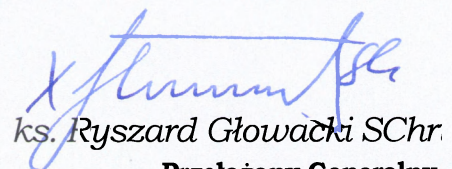 ks. Ryszard Głowacki SChr
Przełożony Generalny